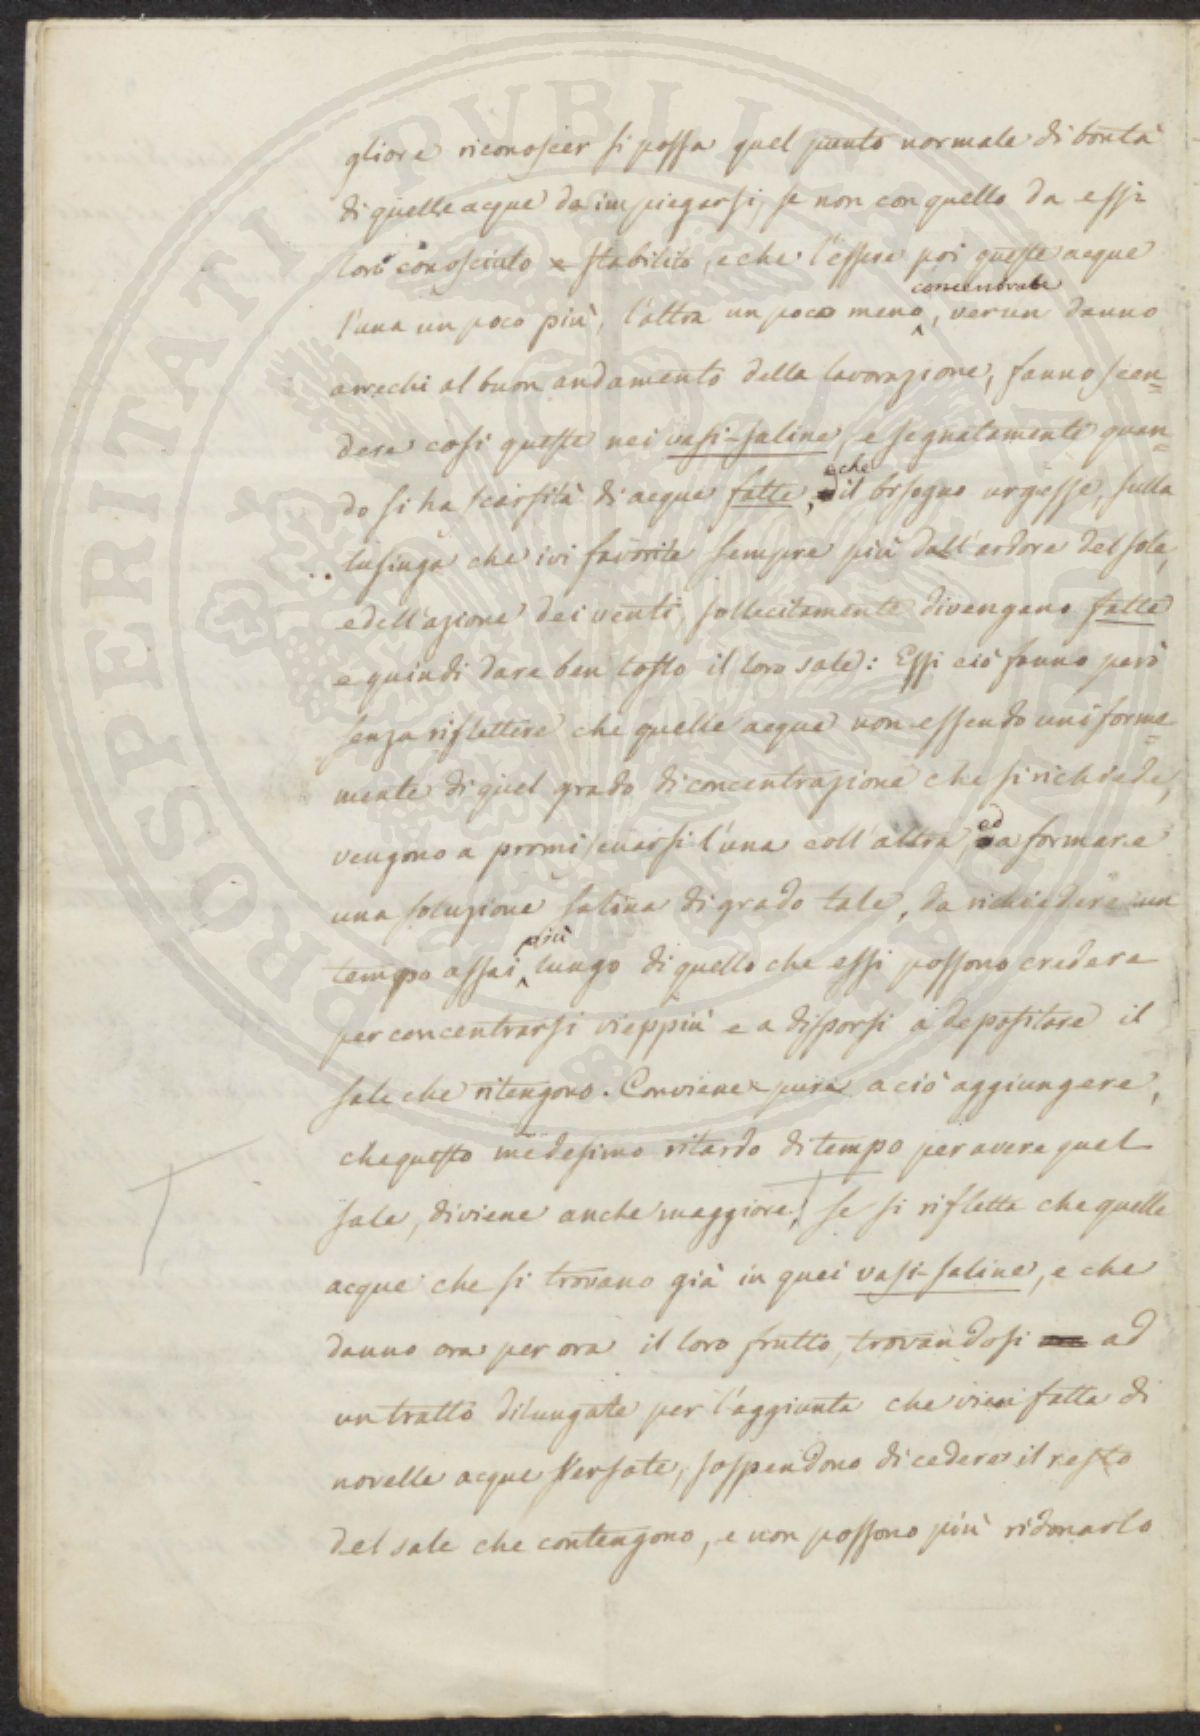 gliore riconoscer si possa quel punto normale di bontà
di quelle acque da impiegarsi, se non con quello da essi
loro conosciuto e stabilito, e che l'essere poi queste acque
l'una un poco più, l'altra un poco meno concentrate, verun danno
arrechi al buon andamento della lavorazione, fanno scen=
dere così queste nei vasi-saline, e segnatamente quan=
do si ha scarsità di acque fatte, e che il bisogno urgesse, sulla
lusinga che ivi favorite sempre più dall'ardore del sole,
e dell'azione dei venti, sollecitamente divengano fatte
e quindi dare ben tosto il loro sale: Essi ciò fanno però
senza riflettere che quelle acque non essendo uniforme=
mente di quel grado di concentrazione che si richiede,
vengono a promiscuarsi l'una coll'altra, ed a formare
una soluzione salina di grado tale, da richiedere un
tempo assai più lungo di quello che essi possono credere
per concentrarsi vieppiù e a disporsi a depositare il
sale che ritengono. Conviene pure a ciò aggiungere,
che questo medesimo ritardo di tempo per avere quel
sale, diviene anche maggiore; se si rifletta che quelle
acque che si trovano già in quei vasi-saline, e che
danno ora per ora il loro frutto, trovandosi ad
un tratto dilungate per l'aggiunta che vien fatta di
novelle acque versate, sospendono di cedere il resto
del sale che contengono, e non possono più ridonarlo
PROSPERITATI PVBLICAE